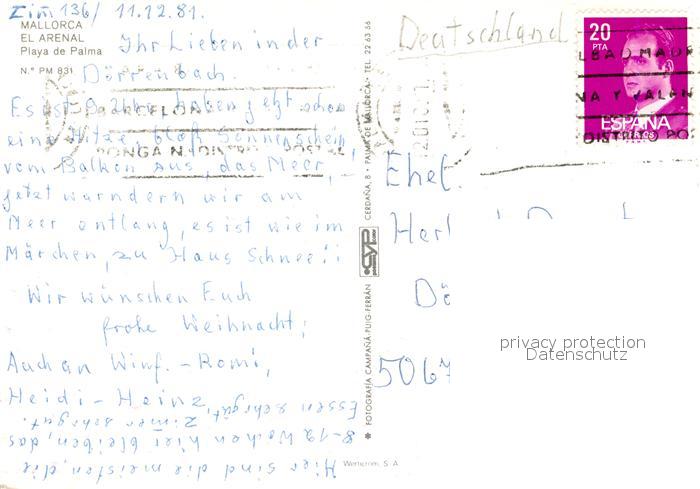 Zim 136/ 11.12.81.
MALLORCA
EL ARENAL
Playa de Palma
N.º PM 831
Ihr Lieben in der
Dörrenbach.
Es ist 9 Uhr, haben jetzt schon
eine Hitze, bloß Sonnenschein,
vom Balkon aus, das Meer,
jetzt wandern wir am
Meer entlang, es ist wie im
Märchen, zu Haus Schnee!!
Wir wünschen Euch
frohe Weihnacht;
Auch an Winf. - Romi,
Heidi - Heinz,
Hier sind die meisten, die
8-12 Wochen hier bleiben, das
Essen sehr gut, Zimer sehr gut.
BARCELONA
PONGA N.
DISTRITO POSTAL
FOTOGRAFIA CAMPAÑÁ-PUIG-FERRÁN
CYP
CERDAÑA, 8 • PALMA DE MALLORCA • TEL. 22 63 36
Wertcrom, S. A.
Deutschland
20
PTA
ESPAÑA
CORREOS
BILBAO MADR
NA Y VALEN
DISTRITO POS
Ehel.
Her
Dö
5067
privacy protection
Datenschutz